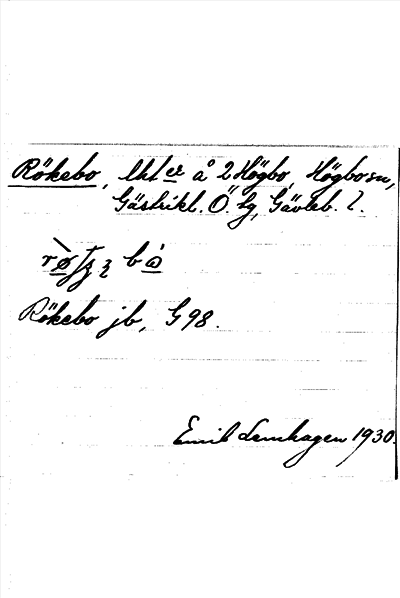 Rökebo, lht er å 2 Högbo, Högbo sn,
Gästrikl. Ö. tg, Gävleb. l.
Rökebo jb, G 98.
Emil Lenhagen 1930.